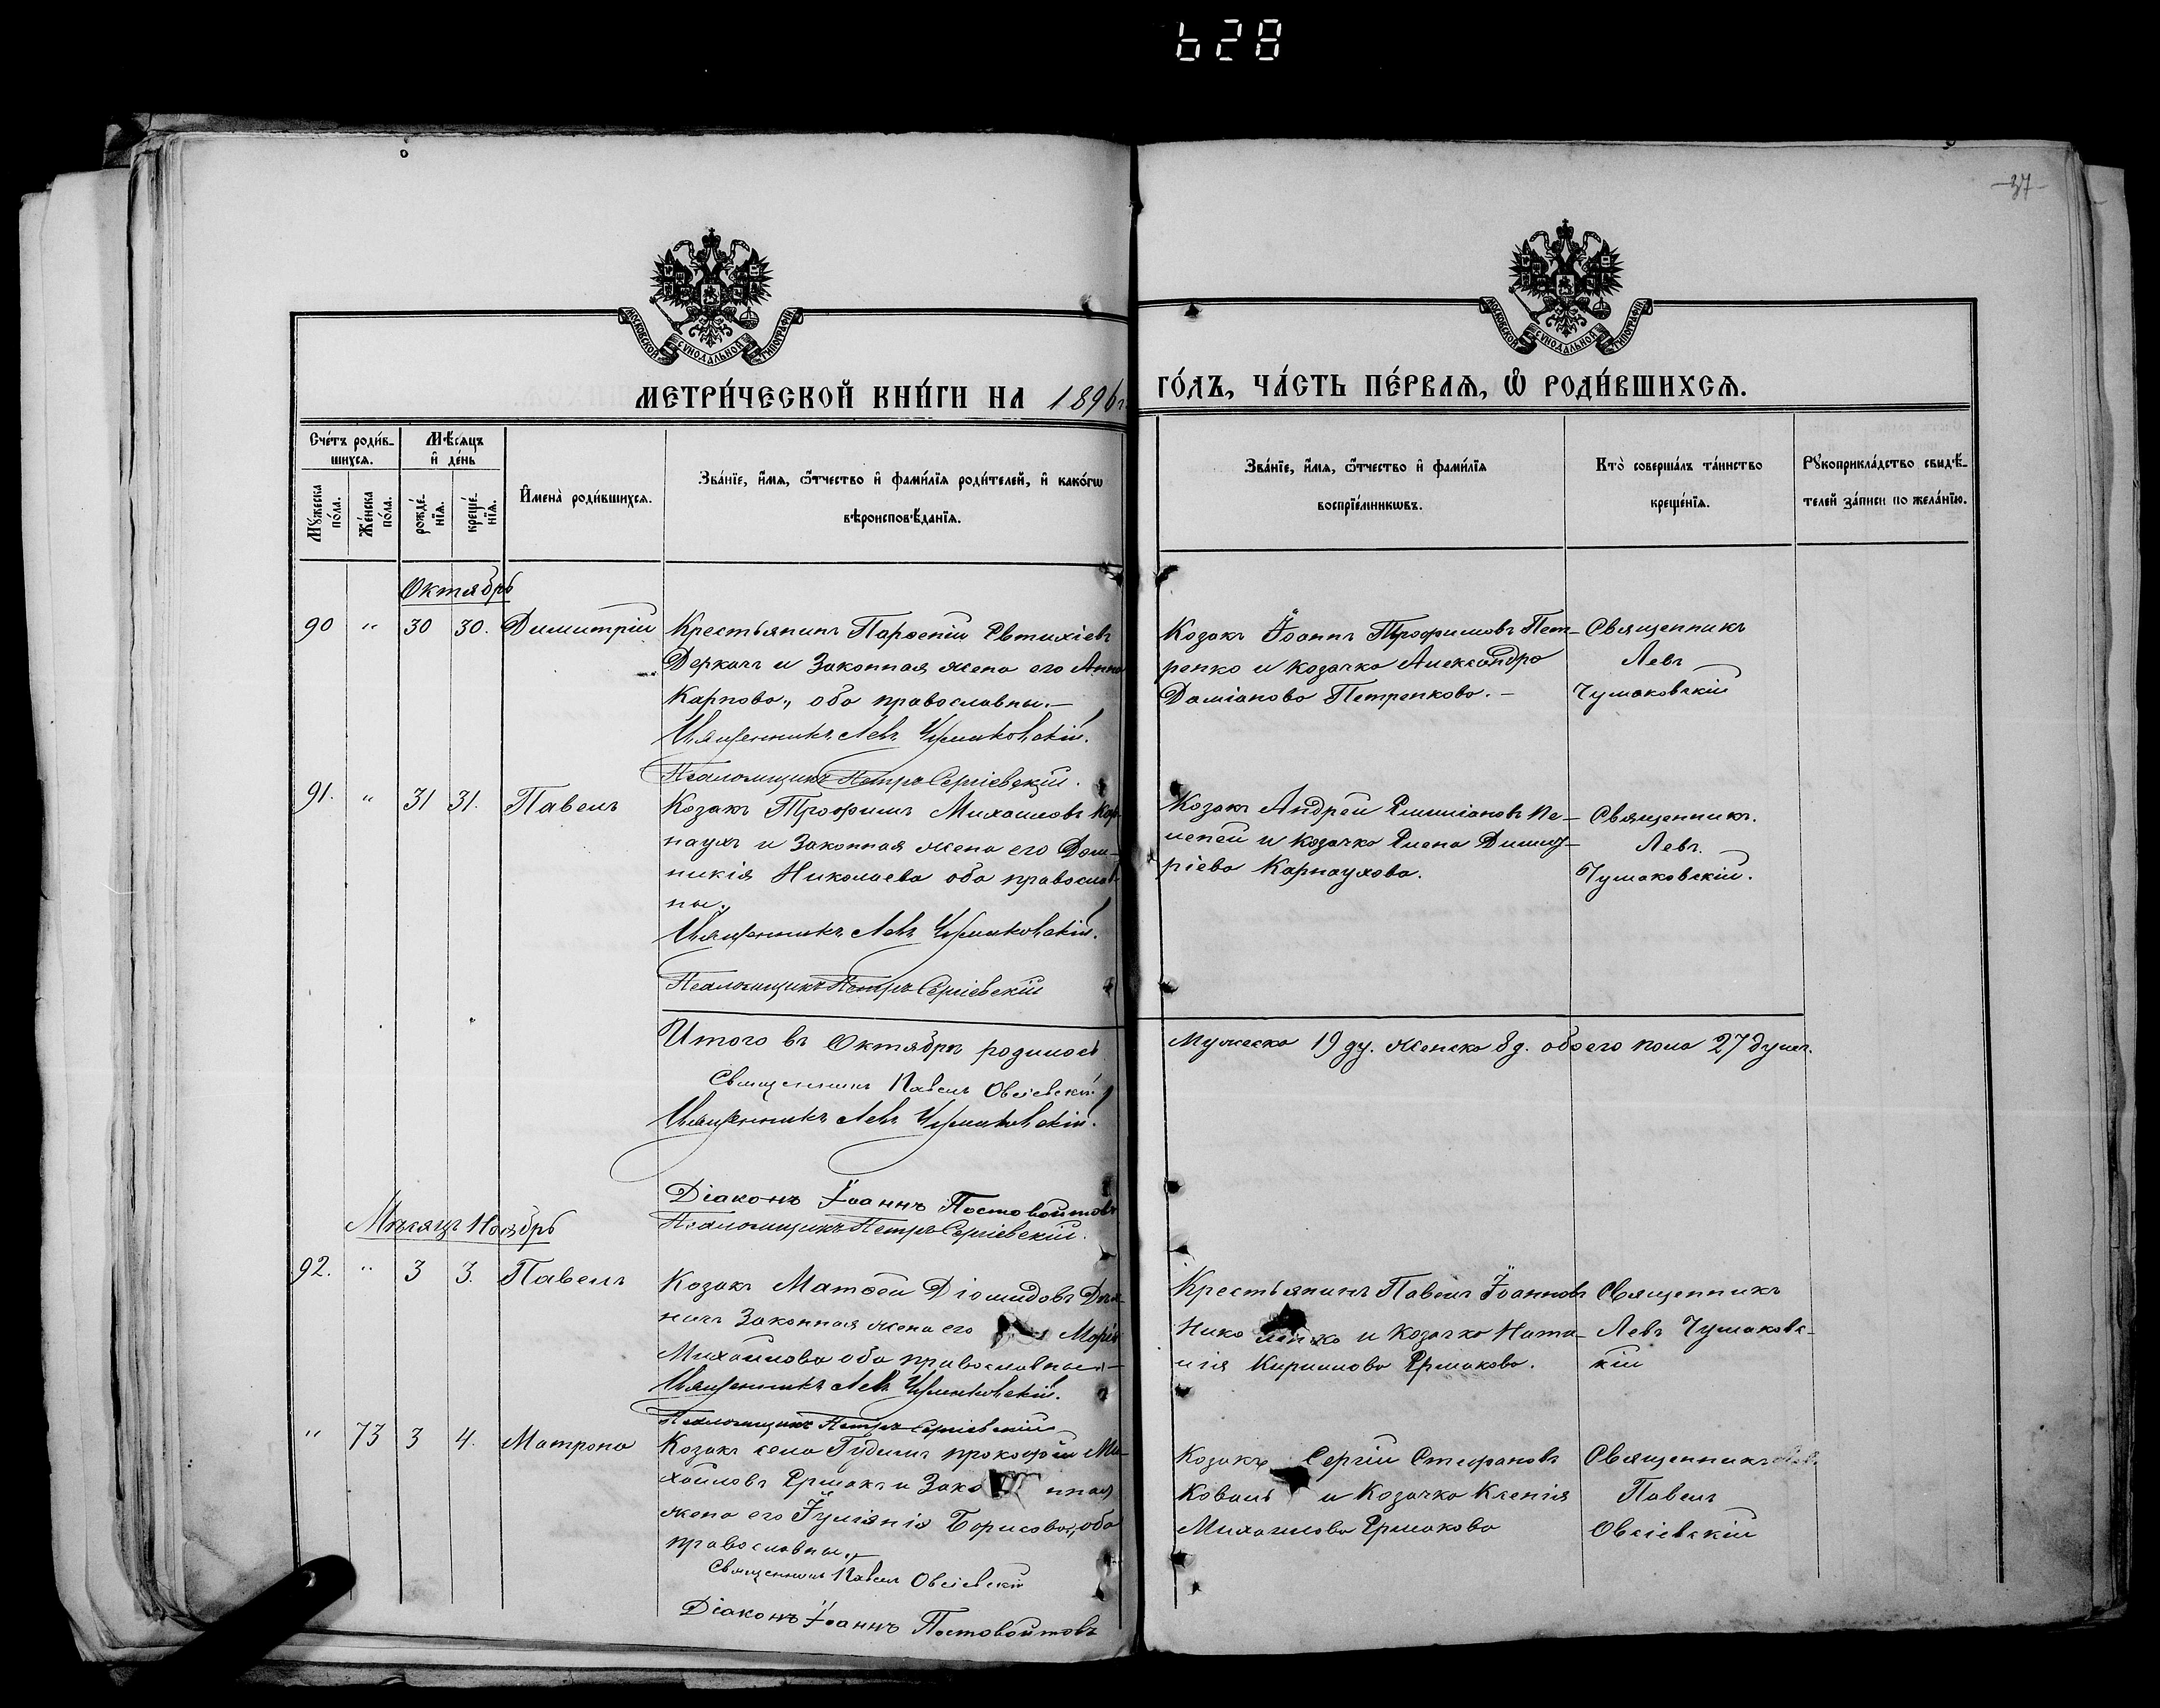 628
37
МОСКОВСКОЙ СѴНОДАЛЬНОЙ ТИПОГРАФІИ
МОСКОВСКОЙ СѴНОДАЛЬНОЙ ТИПОГРАФІИ
МЕТРИ́ЧЕСКОЙ КНИ́ГИ НА 1896 г.
ГО́ДЪ, ЧА́СТЬ ПЕ́РВАѦ, Ѡ҆ РОДИ́ВШИХСѦ.
Сче́тъ роди́в-
шихсѧ.
Мѣ́сѧцъ
и҆ де́нь
Мꙋ́жеска
по́ла.
Же́нска
по́ла.
рожде́-
нїѧ.
креще́-
нїѧ.
И҆мена̀ роди́вшихсѧ.
Зва́нїе, и҆́мѧ, ѻ҆́тчество и҆ фами́лїѧ роди́телей, и҆ како́гѡ
вѣроисповѣ́данїѧ.
Зва́нїе, и҆́мѧ, ѻ҆́тчество и҆ фами́лїѧ
воспрїе́мникѡвъ.
Кто̀ соверша́лъ та́инство
креще́нїѧ.
Рꙋкоприкла́дство свидѣ́-
телей за́писи по жела́нїю.
Октябрь
90 " 30 30. Димитрій
Крестьянинъ Парѳеній Евтихіевъ
Деркачъ и Законная жена его Анна
Карпова, оба православны.—
Священникъ Левъ Чумаковскій.
Псаломщикъ Петръ Сергіевскій.
Козакъ Іоаннъ Трофимовъ Пет-
ренко и козачка Александра
Даміанова Петренкова.—
Священникъ
Левъ
Чумаковскій
91. " 31 31. Павелъ
Козакъ Трофимъ Михаиловъ Кар-
наухъ и Законная жена его Дом-
никія Николаева оба православ-
ны.
Священникъ Левъ Чумаковскій.
Псаломщикъ Петръ Сергіевскій
Козакъ Андрей
и козачка Елена Димит-
ріева Карнаухова.
Священникъ.
Левъ.
Чумаковскій.
Итого въ Октябрѣ родилось
Мужеска 19 ду. женска 8 д. обоего пола 27 душъ.
Священникъ Павелъ Овсіевскій
Священникъ Левъ Чумаковскій.
Діаконъ Іоаннъ Постовойтовъ
Псаломщикъ Петръ Сергіевскій.
Мѣсяцъ Ноябрь
92. " 3 3. Павелъ
Козакъ Матѳей Діомидовъ
Законная жена его Марія
Михаилова оба православные.—
Священникъ Левъ Чумаковскій.
Псаломщикъ Петръ Сергіевскій
Крестьянинъ Павелъ Іоанновъ
Николенко и Козачка Ната-
лія Кириллова Ермакова.
Священникъ
Левъ Чумаковс-
кій
" 73 3 4. Матрона
Козакъ села Гудимъ Прокофій Ми-
хаиловъ Ермакъ и Законная
жена его Іуліанія Борисова, оба
православны.
Священникъ Павелъ Овсіевскій
Діаконъ Іоаннъ Постовойтовъ
Козакъ Сергій Стефановъ
Коваль и Козачка Ксенія
Михаилова Ермакова
Священникъ
Павелъ
Овсіевскій